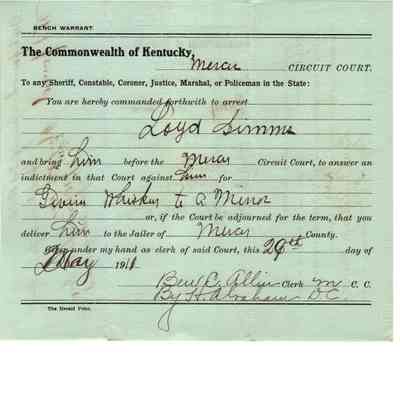 BENCH WARRANT.
The Commonwealth of Kentucky,
Mercer CIRCUIT COURT.
To any Sheriff, Constable, Coroner, Justice, Marshal, or Policeman in the State:
You are hereby commanded forthwith to arrest
Loyd Simms
and bring him before the Mercer Circuit Court, to answer an
indictment in that Court against him for
Givin Whiskey to a Minor
or, if the Court be adjourned for the term, that you
deliver him to the Jailer of Mercer County.
Given under my hand as clerk of said Court, this 29th day of
May 191
Ben C. Allin Clerk m C. C.
By H. Abraham D. C.
The Herald Print.